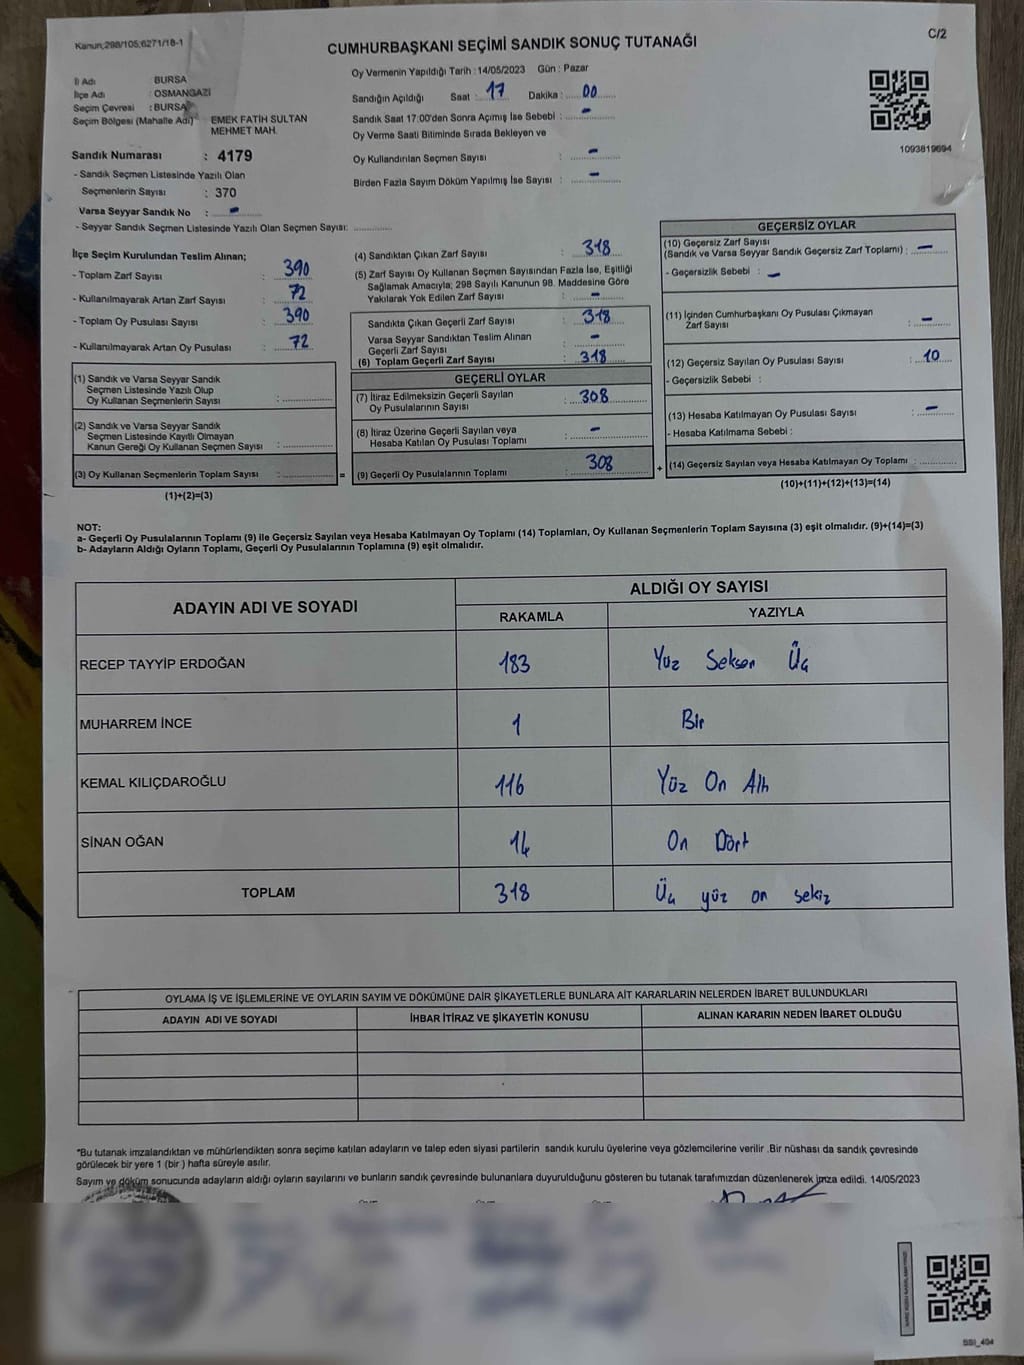 Kanun;298/105;6271/18-1
C/2
CUMHURBAŞKANI SEÇİMİ SANDIK SONUÇ TUTANAĞI
İl Adı BURSA
İlçe Adı : OSMANGAZİ
Seçim Çevresi : BURSA
Seçim Bölgesi (Mahalle Adı) EMEK FATİH SULTAN MEHMET MAH.
Sandık Numarası : 4179
- Sandık Seçmen Listesinde Yazılı Olan
Seçmenlerin Sayısı : 370
Varsa Seyyar Sandık No : -
- Seyyar Sandık Seçmen Listesinde Yazılı Olan Seçmen Sayısı:
Oy Vermenin Yapıldığı Tarih : 14/05/2023 Gün : Pazar
Sandığın Açıldığı Saat : 17 Dakika : 00
Sandık Saat 17:00'den Sonra Açımış İse Sebebi : -
Oy Verme Saati Bitiminde Sırada Bekleyen ve
Oy Kullandırılan Seçmen Sayısı : -
Birden Fazla Sayım Döküm Yapılmış İse Sayısı : -
1093819694
İlçe Seçim Kurulundan Teslim Alınan;
- Toplam Zarf Sayısı : 390
- Kullanılmayarak Artan Zarf Sayısı : 72
- Toplam Oy Pusulası Sayısı : 390
- Kullanılmayarak Artan Oy Pusulası : 72
(1) Sandık ve Varsa Seyyar Sandık
Seçmen Listesinde Yazılı Olup
Oy Kullanan Seçmenlerin Sayısı :
(2) Sandık ve Varsa Seyyar Sandık
Seçmen Listesinde Kayıtlı Olmayan
Kanun Gereği Oy Kullanan Seçmen Sayısı :
(3) Oy Kullanan Seçmenlerin Toplam Sayısı : =
(1)+(2)=(3)
(4) Sandıktan Çıkan Zarf Sayısı : 318
(5) Zarf Sayısı Oy Kullanan Seçmen Sayısından Fazla İse, Eşitliği
Sağlamak Amacıyla, 298 Sayılı Kanunun 98. Maddesine Göre
Yakılarak Yok Edilen Zarf Sayısı : -
Sandıkta Çıkan Geçerli Zarf Sayısı : 318
Varsa Seyyar Sandıktan Teslim Alınan
Geçerli Zarf Sayısı : -
(6) Toplam Geçerli Zarf Sayısı : 318
GEÇERLİ OYLAR
(7) İtiraz Edilmeksizin Geçerli Sayılan
Oy Pusulalarının Sayısı : 308
(8) İtiraz Üzerine Geçerli Sayılan veya
Hesaba Katılan Oy Pusulası Toplamı : -
(9) Geçerli Oy Pusulalarının Toplamı : 308 +
GEÇERSİZ OYLAR
(10) Geçersiz Zarf Sayısı
(Sandık ve Varsa Seyyar Sandık Geçersiz Zarf Toplamı) : -
- Geçersizlik Sebebi : -
(11) İçinden Cumhurbaşkanı Oy Pusulası Çıkmayan
Zarf Sayısı : -
(12) Geçersiz Sayılan Oy Pusulası Sayısı : 10
- Geçersizlik Sebebi :
(13) Hesaba Katılmayan Oy Pusulası Sayısı : -
- Hesaba Katılmama Sebebi :
(14) Geçersiz Sayılan veya Hesaba Katılmayan Oy Toplamı :
(10)+(11)+(12)+(13)=(14)
NOT:
a- Geçerli Oy Pusulalarının Toplamı (9) ile Geçersiz Sayılan veya Hesaba Katılmayan Oy Toplamı (14) Toplamları, Oy Kullanan Seçmenlerin Toplam Sayısına (3) eşit olmalıdır. (9)+(14)=(3)
b- Adayların Aldığı Oyların Toplamı, Geçerli Oy Pusulalarının Toplamına (9) eşit olmalıdır.
ADAYIN ADI VE SOYADI ALDIĞI OY SAYISI
RAKAMLA YAZIYLA
RECEP TAYYİP ERDOĞAN 183 Yüz Seksen Üç
MUHARREM İNCE 1 Bir
KEMAL KILIÇDAROĞLU 116 Yüz On Altı
SİNAN OĞAN 14 On Dört
TOPLAM 318 Üç yüz on sekiz
OYLAMA İŞ VE İŞLEMLERİNE VE OYLARIN SAYIM VE DÖKÜMÜNE DAİR ŞİKAYETLERLE BUNLARA AİT KARARLARIN NELERDEN İBARET BULUNDUKLARI
ADAYIN ADI VE SOYADI İHBAR İTİRAZ VE ŞİKAYETİN KONUSU ALINAN KARARIN NEDEN İBARET OLDUĞU
"Bu tutanak imzalandıktan ve mühürlendikten sonra seçime katılan adayların ve talep eden siyasi partilerin sandık kurulu üyelerine veya gözlemcilerine verilir .Bir nüshası da sandık çevresinde
görülecek bir yere 1 (bir ) hafta süreyle asılır.
Sayım ve döküm sonucunda adayların aldığı oyların sayılarını ve bunların sandık çevresinde bulunanlara duyurulduğunu gösteren bu tutanak tarafımızdan düzenlenerek imza edildi. 14/05/2023
SSI_404